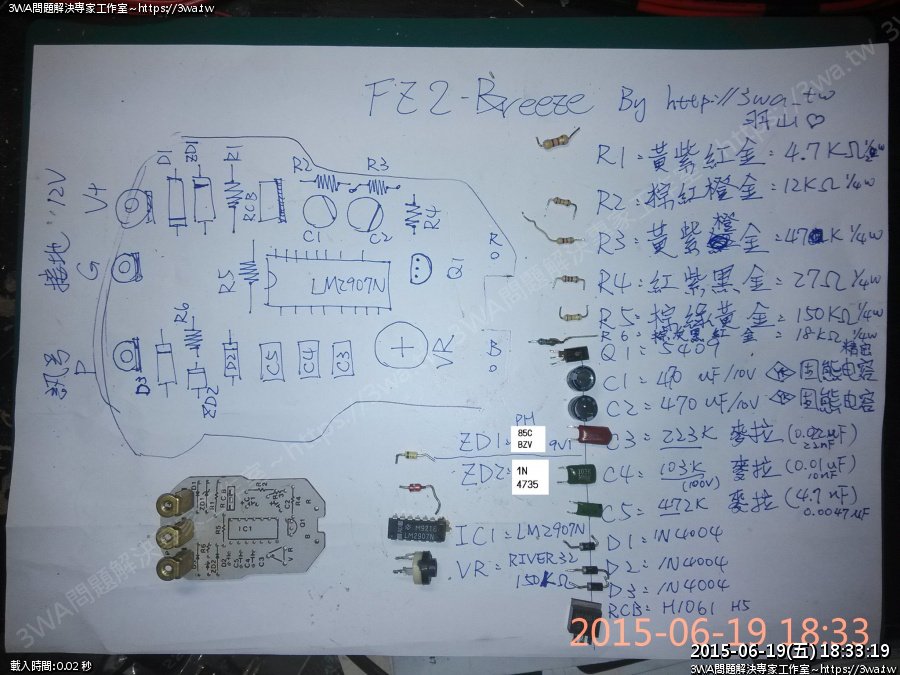 3WA問題解決專家工作室~https://3wa.tw
3WA問題解決專家工作室~https://3wa.tw
FZ2-Breeze By http://3wa.tw
羽山♡
R1:黃紫紅金=4.7KΩ 1/4w
R2:棕紅橙金=12KΩ 1/4w
R3:黃紫橙金=47K 1/4w
R4:紅紫黑金=27Ω 1/4w
R5:棕綠黃金=150KΩ 1/4w
R6:棕灰黑紅金=18KΩ 1/4w
精密
Q1:
C1:470 uF/10V 固態电容
C2:470 uF/10V 固態电容
C3=223K 麥拉(0.022uF)
22nF
C4:103K 麥拉(0.01uF)
(100V) 10nF
C5:472K 麥拉(4.7nF)
0.0047uF
D1:1N4004
D2:1N4004
D3:1N4004
RCB:H1061 H5
12V
V+
接地
G
訊号
P
D1
ZD1
R1
RCB
R2
R3
C1
C2
R4
R
Q1
R5
LM2907N
R6
D3
ZD2
D2
C5
C4
C3
VR
B
PH
ZD1= 85C
BZV 9V1
ZD2= 1N
4735
IC1=LM2907N
VR=RIVER32
150KΩ
M921C
LM2907N
IC1
2015-06-19 18:33
2015-06-19(五) 18:33:19
載入時間:0.02 秒
3WA問題解決專家工作室~https://3wa.tw